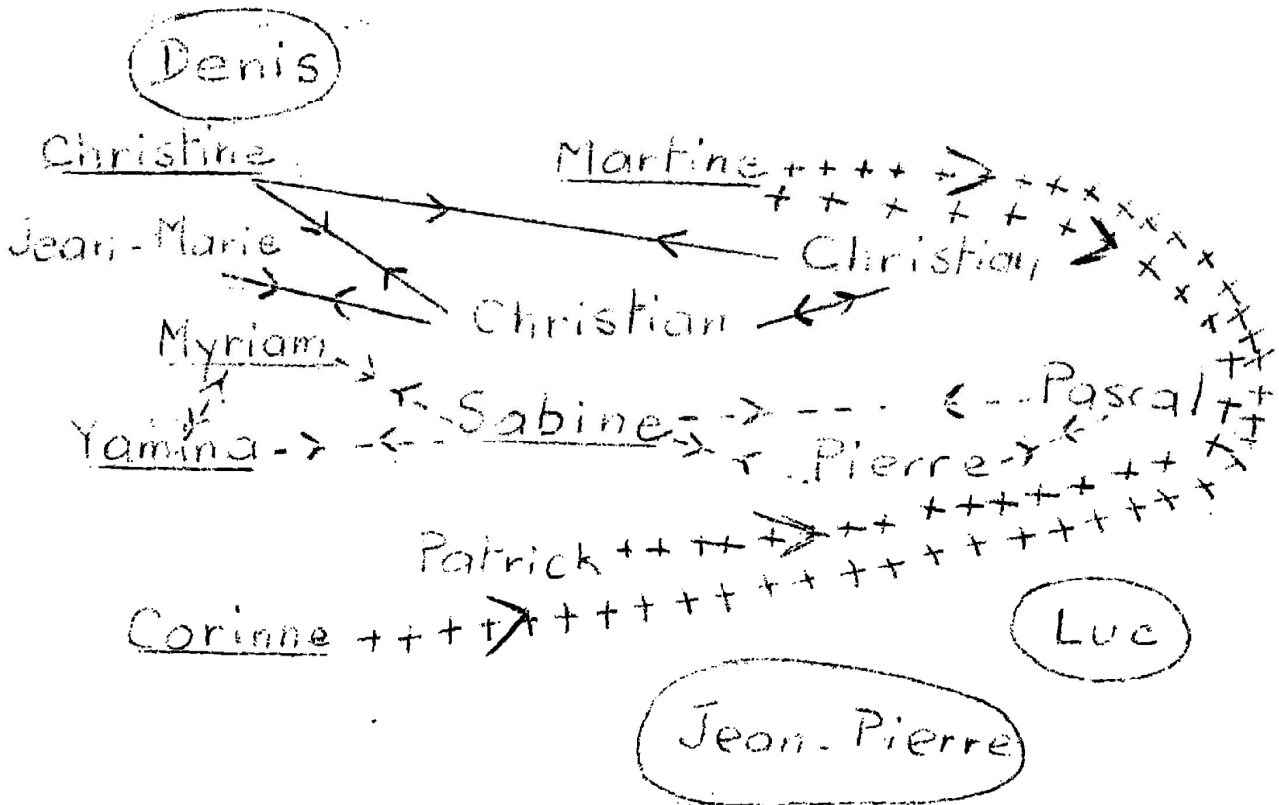 Denis
Christine
Martine
Jean-Marie
Christian
Christian
Myriam
Pascal
Sabine
Yamina
Pierre
Patrick
Corinne
Luc
Jean-Pierre